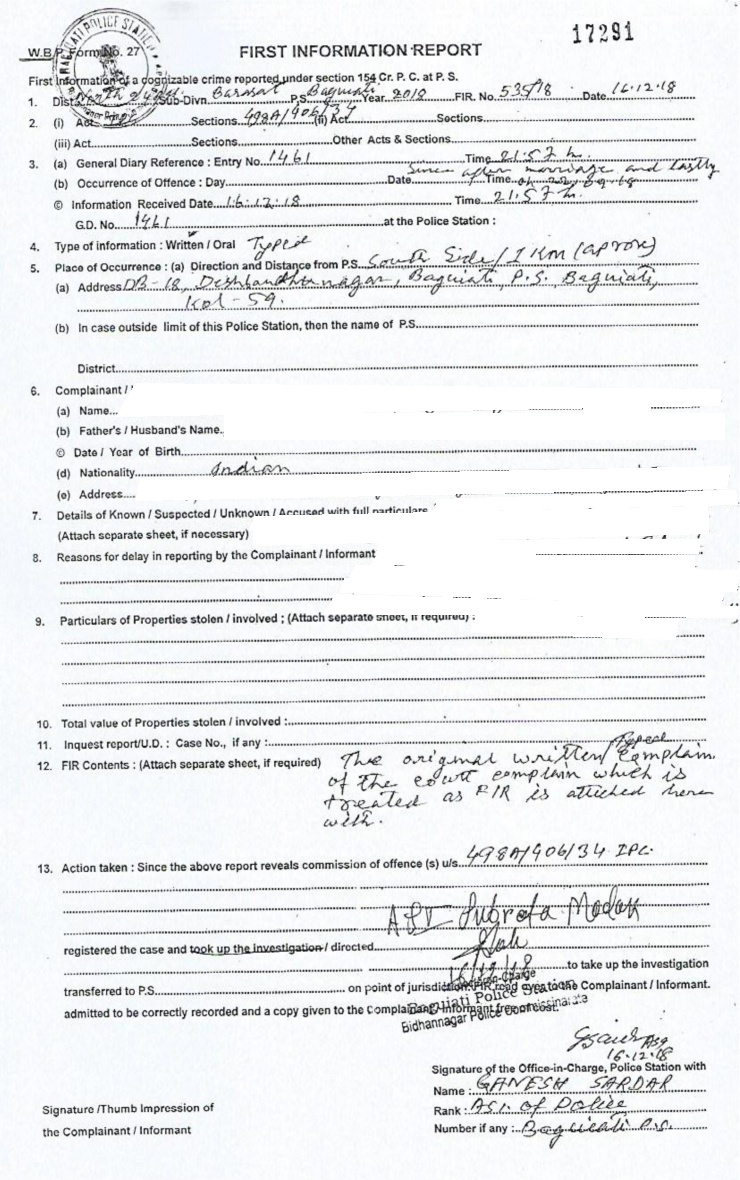 17291
W.B.P. Form No. 27
FIRST INFORMATION REPORT
First Information of a cognizable crime reported under section 154 Cr. P. C. at P. S.
1. Dist. North 24 Sub-Divn. Barasat P.S. Baguiati Year 2018 FIR. No. 535/18 Date 16.12.18
2. (i) Act Sections 498A/406/34 (ii) Act Sections
(iii) Act Sections Other Acts & Sections
3. (a) General Diary Reference : Entry No. 1461 Time 21.57 h.
Since after marriage and lastly
(b) Occurrence of Offence : Day Date Time
© Information Received Date 16.12.18 Time 21.57 h.
G.D. No. 1461 at the Police Station :
4. Type of information : Written / Oral Typed
5. Place of Occurrence : (a) Direction and Distance from P.S. South Side/1 Km (aprox)
(a) Address DB-18, Deshbandhunagar, Baguiati P.S. Baguiati,
Kol-59.
(b) In case outside limit of this Police Station, then the name of P.S.
District
6. Complainant /
(a) Name
(b) Father's / Husband's Name.
© Date / Year of Birth
(d) Nationality Indian
(e) Address
7. Details of Known / Suspected / Unknown / Accused with full particulars
(Attach separate sheet, if necessary)
8. Reasons for delay in reporting by the Complainant / Informant
9. Particulars of Properties stolen / involved ; (Attach separate sheet, if required) :
10. Total value of Properties stolen / involved :
11. Inquest report/U.D. : Case No., if any :
12. FIR Contents : (Attach separate sheet, if required) The original written/Typed Complain
of the court complain which is
treated as FIR is attiched here
with.
13. Action taken : Since the above report reveals commission of offence (s) u/s. 498A/406/34 IPC.
ASI Subrata Modak
registered the case and took up the investigation / directed
16/12/18 to take up the investigation
transferred to P.S. on point of jurisdiction. FIR read over to the Complainant / Informant.
admitted to be correctly recorded and a copy given to the Complainant / Informant free of cost.
Baguiati Police Station
Bidhannagar Police Commissionarate
16.12.18
Signature of the Office-in-Charge, Police Station with
Name : GANESH SARDAR
Signature /Thumb Impression of
Rank : ASI. of Police
the Complainant / Informant
Number if any : Baguiati P.S.